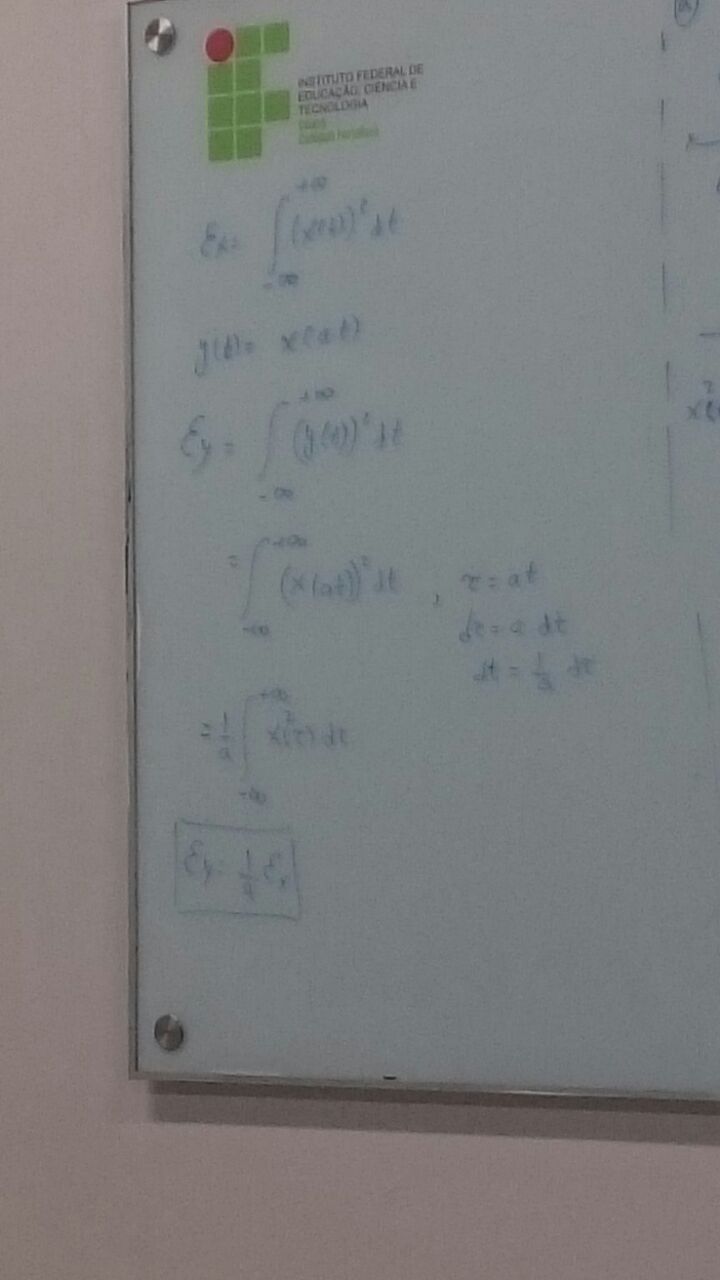 INSTITUTO FEDERAL DE
EDUCAÇÃO, CIÊNCIA E
TECNOLOGIA
Ex = ∫_{-∞}^{+∞} (x(t))² dt
y(t) = x(at)
Ey = ∫_{-∞}^{+∞} (y(t))² dt
= ∫_{-∞}^{+∞} (x(at))² dt , τ = at
dτ = a dt
dt = 1/a dτ
= 1/a ∫_{-∞}^{+∞} x²(τ) dτ
Ey = 1/a Ex